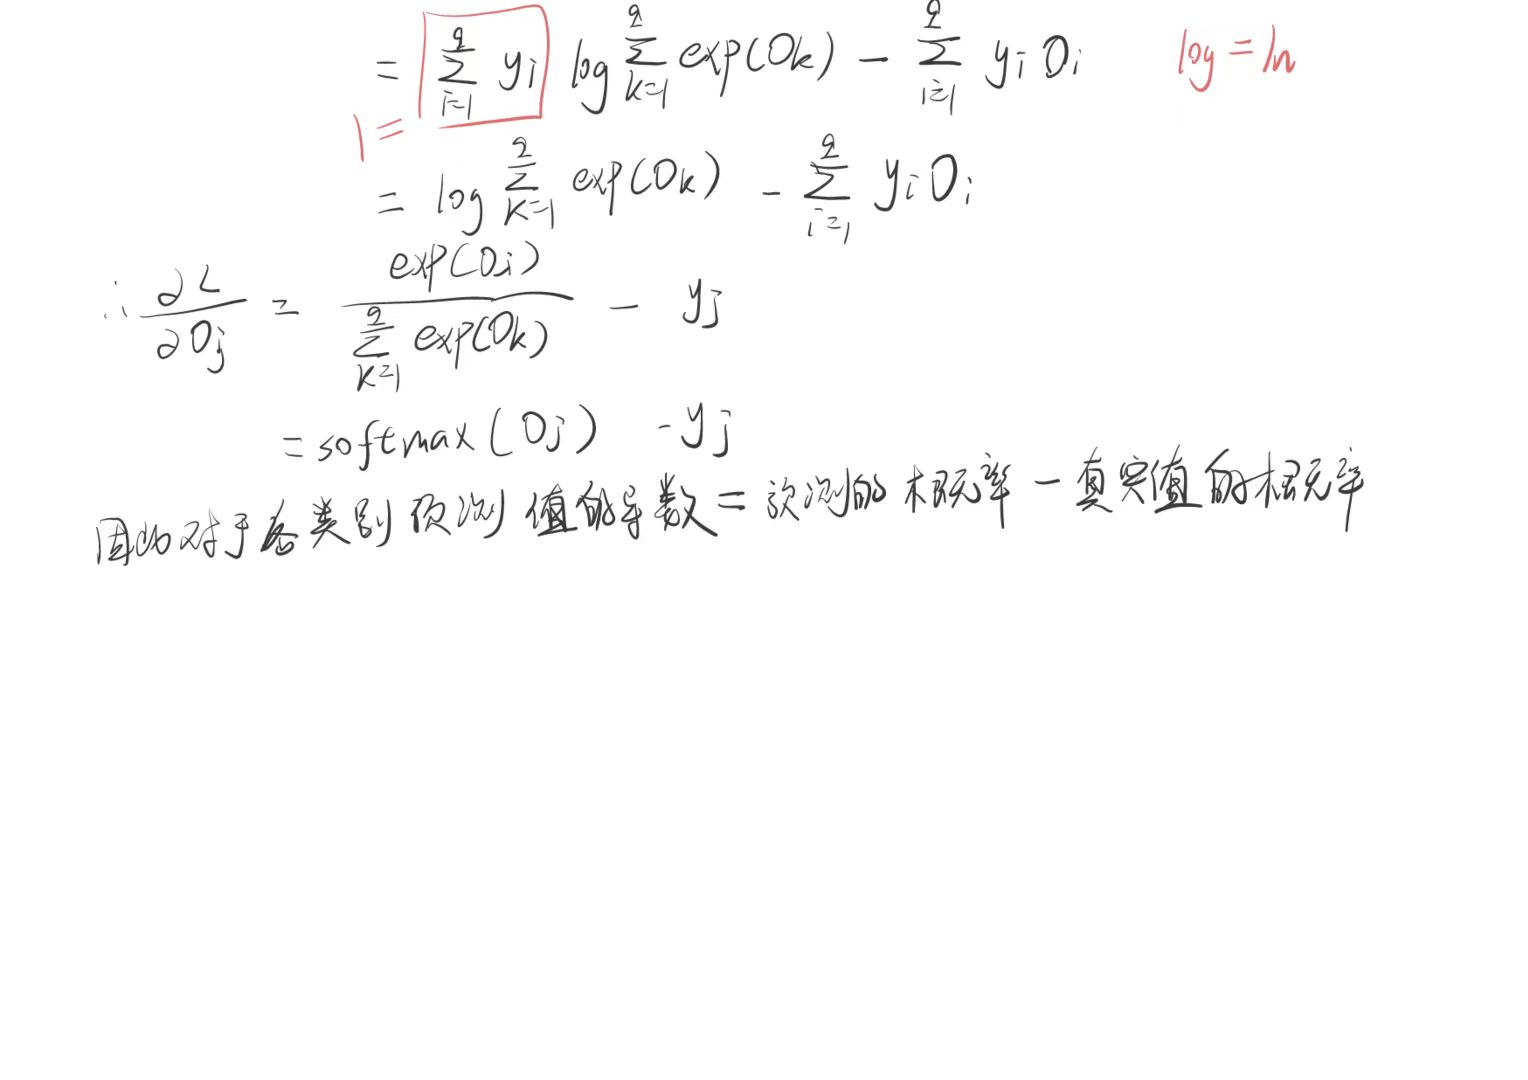 = \sum_{i=1}^{q} y_i log \sum_{k=1}^{q} exp(O_k) - \sum_{i=1}^{q} y_i O_i log = ln
1 =
= log \sum_{k=1}^{q} exp(O_k) - \sum_{i=1}^{q} y_i O_i
∴ \frac{∂L}{∂O_j} = \frac{exp(O_i)}{\sum_{k=1}^{q} exp(O_k)} - y_j
= softmax(O_j) - y_j
因此对于各类别预测值的导数 = 预测的概率 - 真实值的概率